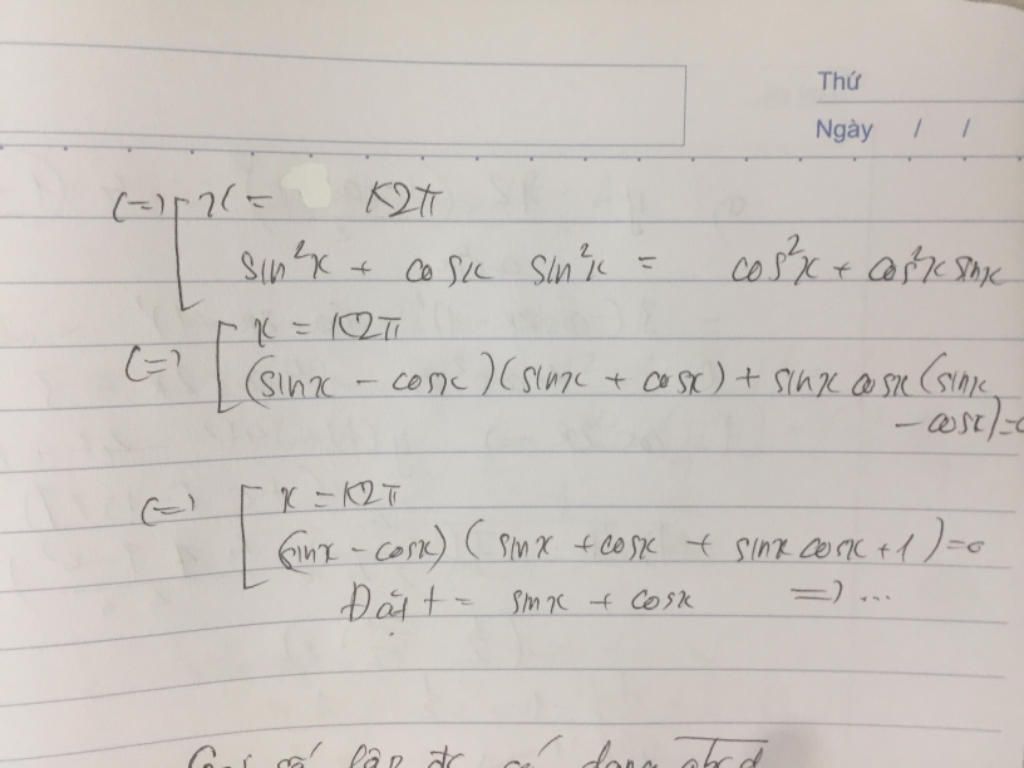 Thứ
Ngày / /
(=) [ x = k2π
sin²x + cosx sin²x = cos²x + cos²x sinx
(=) [ x = k2π
(sinx - cosx)(sinx + cosx) + sinx cosx (sinx
- cosx)=0
(=) [ x = k2π
(sinx - cosx) ( sinx + cosx + sinx cosx + 1 ) = 0
Đặt t = sinx + cosx => ...
số lập đc có dạng abcd